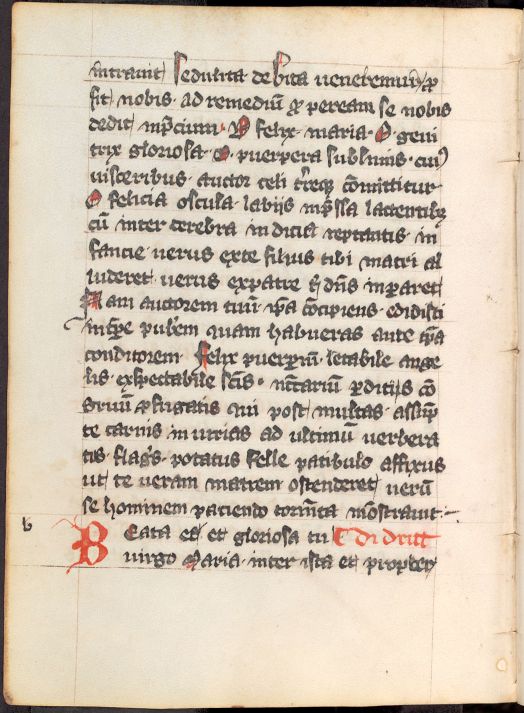 intrauit sedulita debita veneremur q
sit nobis ad remediū q peream se nobis
dedit mp̄cium O felix maria O geni
trix gloriosa O puerpera sublimis cui9
uisceribus auctor celi t̄req cōmittitur
O felicia oscula labijs mp̄ssa lactentibꝫ
cū inter crebra indicia reptantis in
fancie uerus ex te filius tibi matri al
luderet uerus ex patre dn̄s imparet
Nam auctorem tuū ip̄a cōcipiens edidisti
in tp̄e pulem quam habueras ante ip̄a
conditorem Felix puerp̄iū letabile ange
lis exspectabile sc̄is nc̄tariū p̄ditijs cō
gruū p̄fugatis qui post multas assūp
te carnis iniurias ad ultimū uerbera
tus flaḡs potatus felle patibulo affixus
ut te ueram matrem ostenderet uerū
se hominem paciendo torm̄ta mōstrauit
b
Beata es et gloriosa tu Di dritt
uirgo Maria inter ista et propter